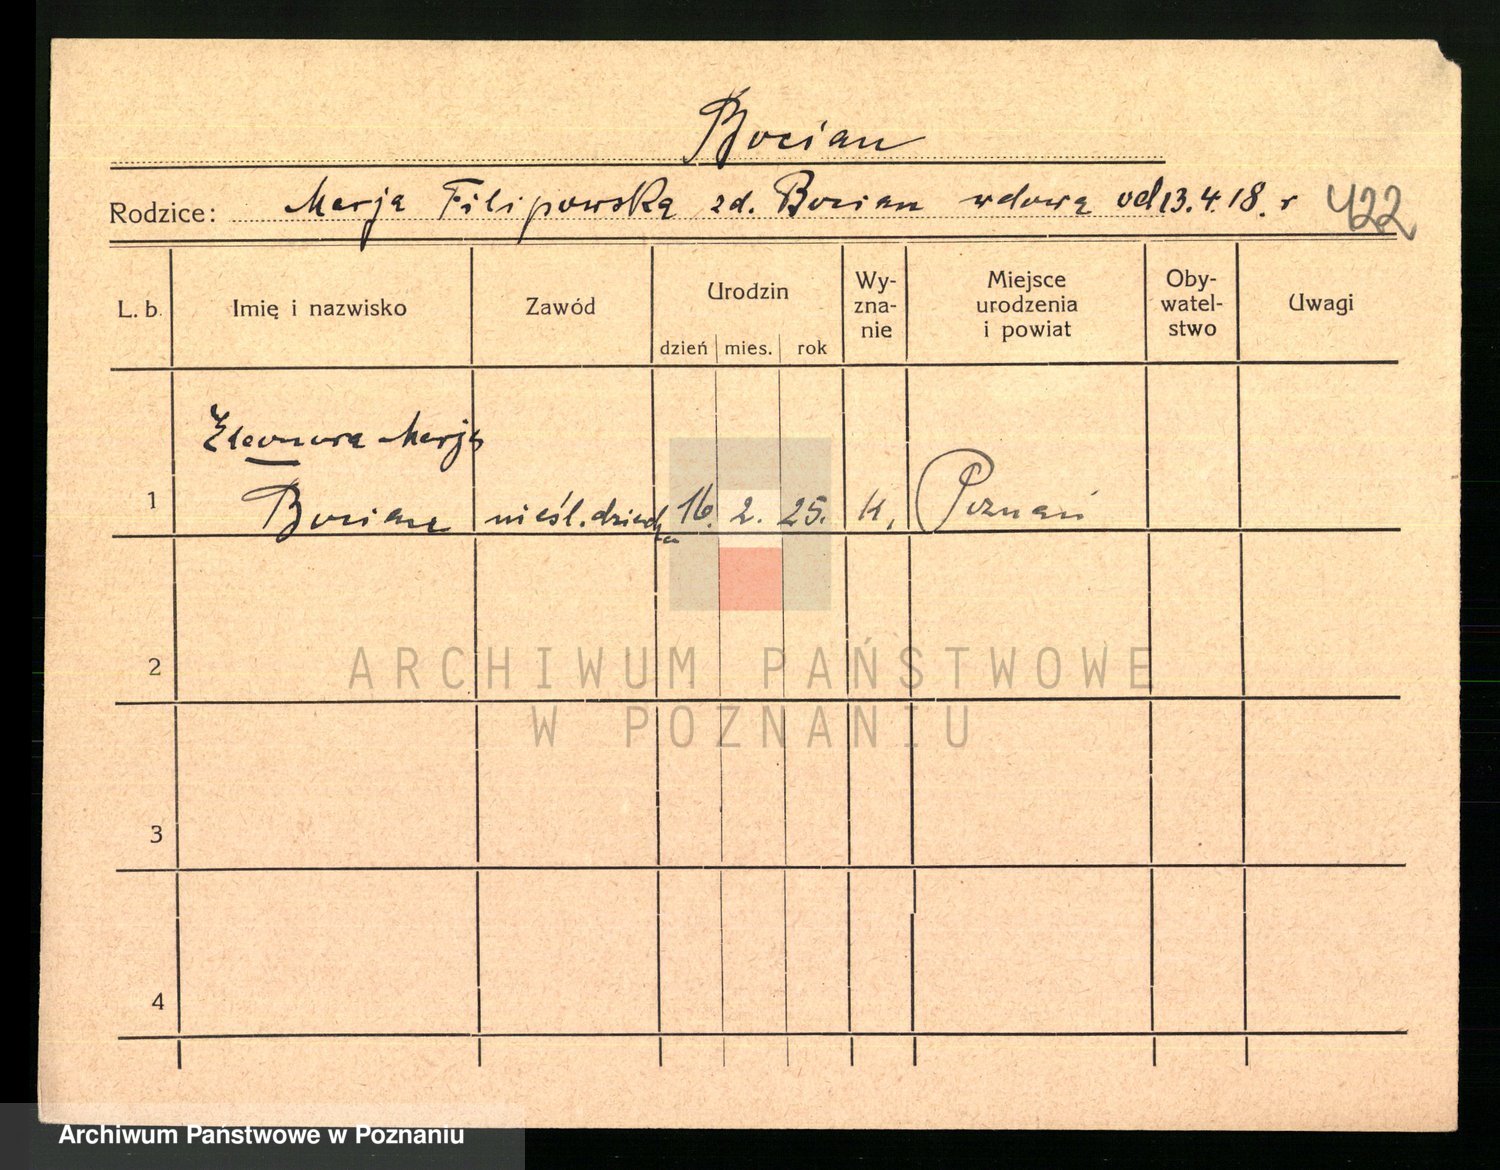 Bocian
Rodzice: Marja Filipowska zd. Bocian wdową od 13.4.18. r 422
L. b. Imię i nazwisko Zawód Urodzin Wy-zna-nie Miejsce urodzenia i powiat Oby-watel-stwo Uwagi
dzień mies. rok
Eleonora Marja
1 Bocian nieśl. dziecko 16. 2. 25. k. Poznań
2
ARCHIWUM PAŃSTWOWE
W POZNANIU
3
4
Archiwum Państwowe w Poznaniu